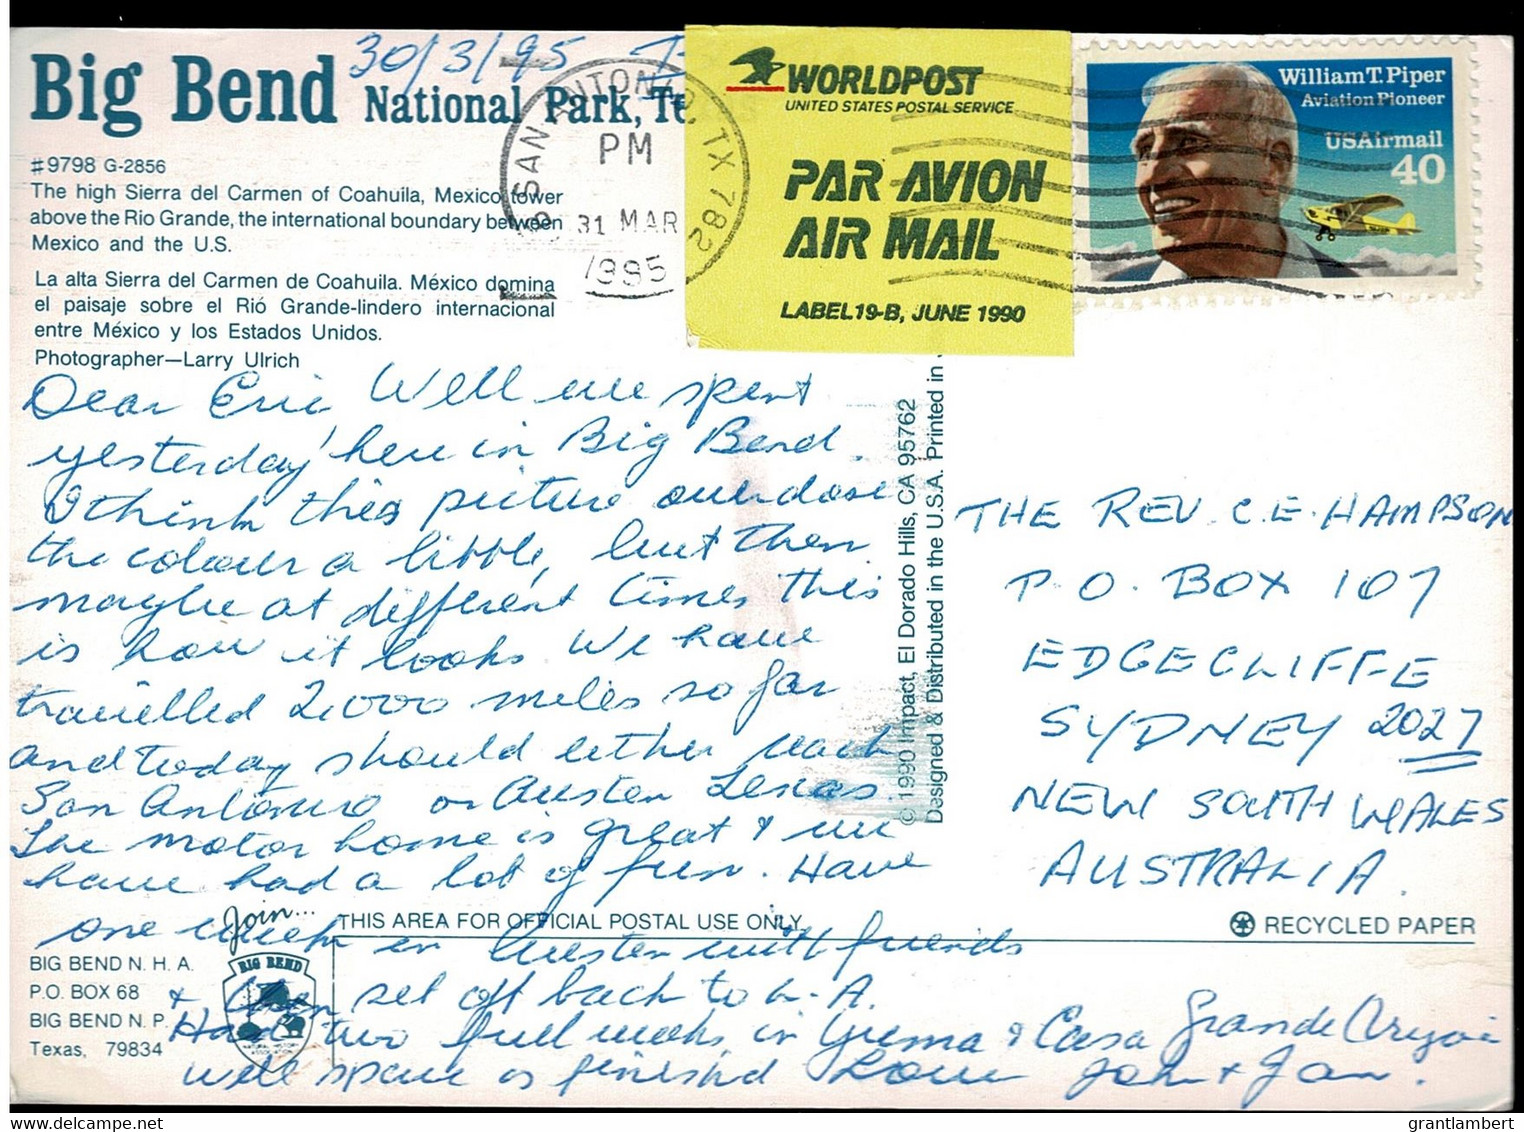 Big Bend
National Park, Te
30/3/95
#9798 G-2856
The high Sierra del Carmen of Coahuila, Mexico tower
above the Rio Grande, the international boundary between
Mexico and the U.S.
La alta Sierra del Carmen de Coahuila. México domina
el paisaje sobre el Rió Grande-lindero internacional
entre México y los Estados Unidos.
Photographer—Larry Ulrich
SAN ANTONIO, TX 782
PM
31 MAR
1995
WORLDPOST
UNITED STATES POSTAL SERVICE
PAR AVION
AIR MAIL
LABEL 19-B, JUNE 1990
William T. Piper
Aviation Pioneer
USAirmail
40
Dear Eric Well we spent
yesterday here in Big Bend.
I think this picture overdose
the colour a little, but then
maybe at different times this
is how it looks. We have
travelled 2,000 miles so far
and today should either reach
San Antonio or Austen Texas.
The motor home is great & we
have had a lot of fun. Have
one week in Austen with friends
& then set off back to L.A.
Had two full weeks in Yuma & Casa Grande
Well space is finished Love John & Jan.
© 1990 Impact, El Dorado Hills, CA 95762
Designed & Distributed in the U.S.A. Printed in
THE REV. C.E. HAMPSON
P.O. BOX 107
EDGECLIFFE
SYDNEY 2027
NEW SOUTH WALES
AUSTRALIA.
Join...
BIG BEND
NATURAL HISTORY
ASSOCIATION
BIG BEND N. H. A.
P.O. BOX 68
BIG BEND N. P.
Texas, 79834
THIS AREA FOR OFFICIAL POSTAL USE ONLY
RECYCLED PAPER
grantlambert